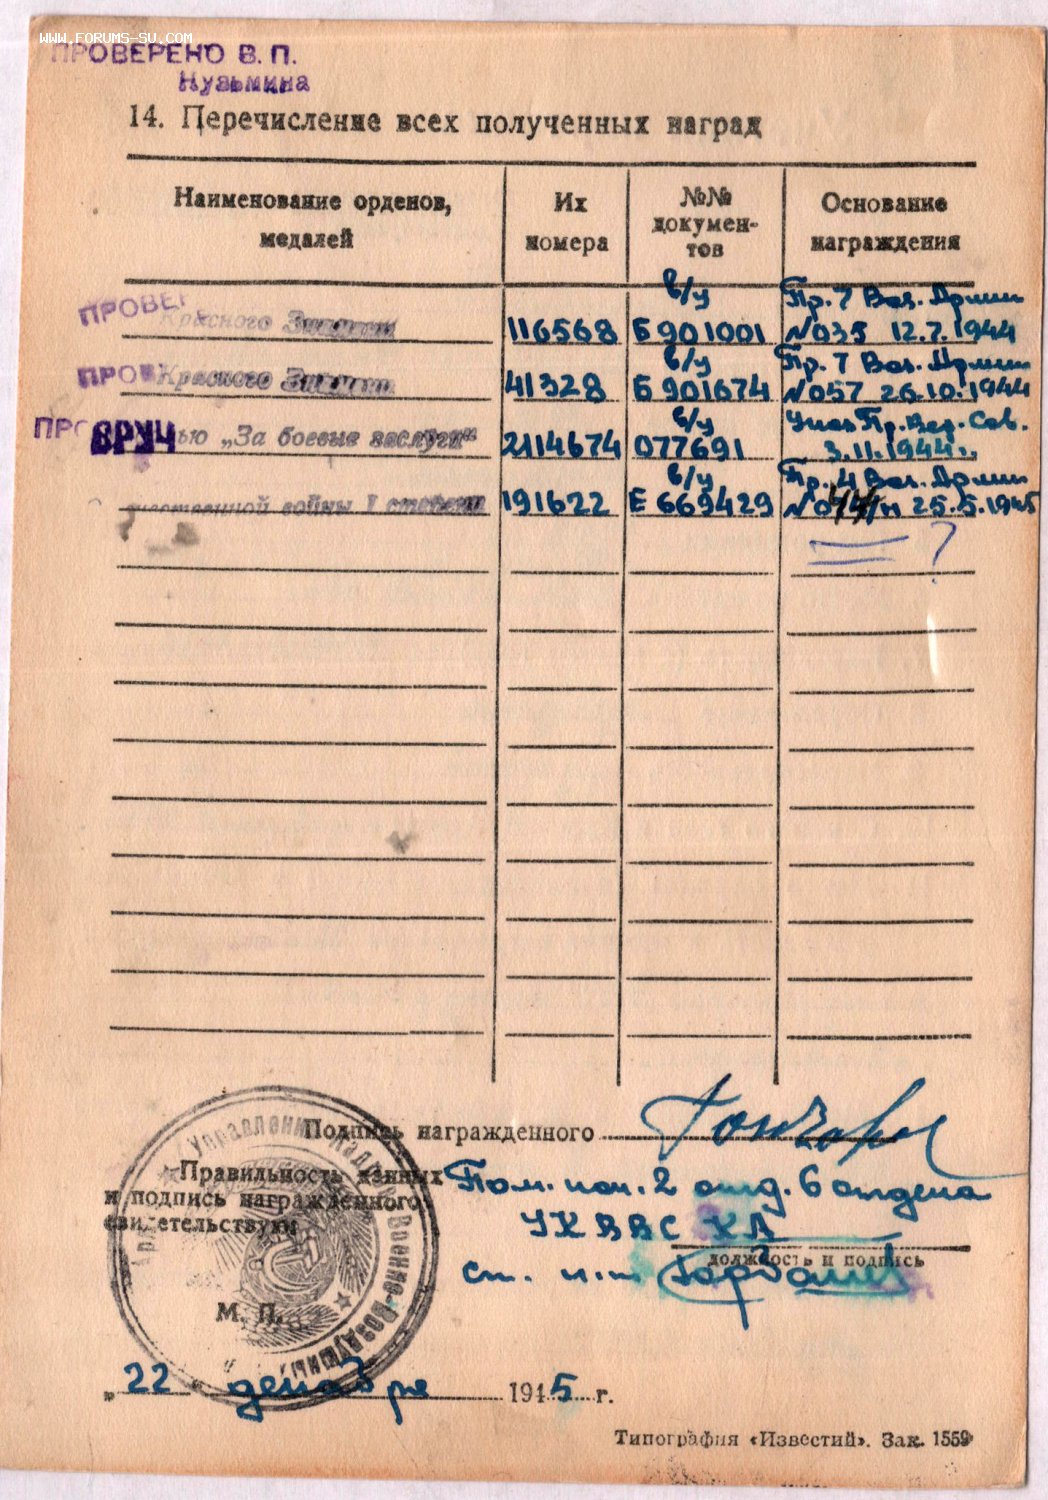 WWW.FORUMS-SU.COM
ПРОВЕРЕНО В. П.
Кузьмина
14. Перечисление всех полученных наград
Наименование орденов, медалей
Их номера
№№ докумен-тов
Основание награждения
ПРОВЕР
Красного Знамени
116568
в/у
Б 901001
Пр. 7 Воз. Армии
№ 035 12.7.1944
ПРОВ
Красного Знамени
41328
в/у
Б 901674
Пр. 7 Воз. Армии
№ 057 26.10.1944
ПРО
ВРУЧ
ью „За боевые заслуги“
2114674
в/у
077691
Указ Пр. Вер. Сов.
3.11.1944г.
чественной войны I степени
191622
в/у
Е 669429
Пр. 4 Воз. Армии
25.5.1945
?
Подпись награжденного
Гончаров
Правильность данных
и подпись награжденного
свидетельствую
Пом. нач. 2 отд. 6 отдела
УК ВВС КА
должность и подпись
ст. л-т
М. П.
Управление
Военно-Воздушных
„ 22 “ декабря 1945 г.
Типография «Известий». Зак. 1559